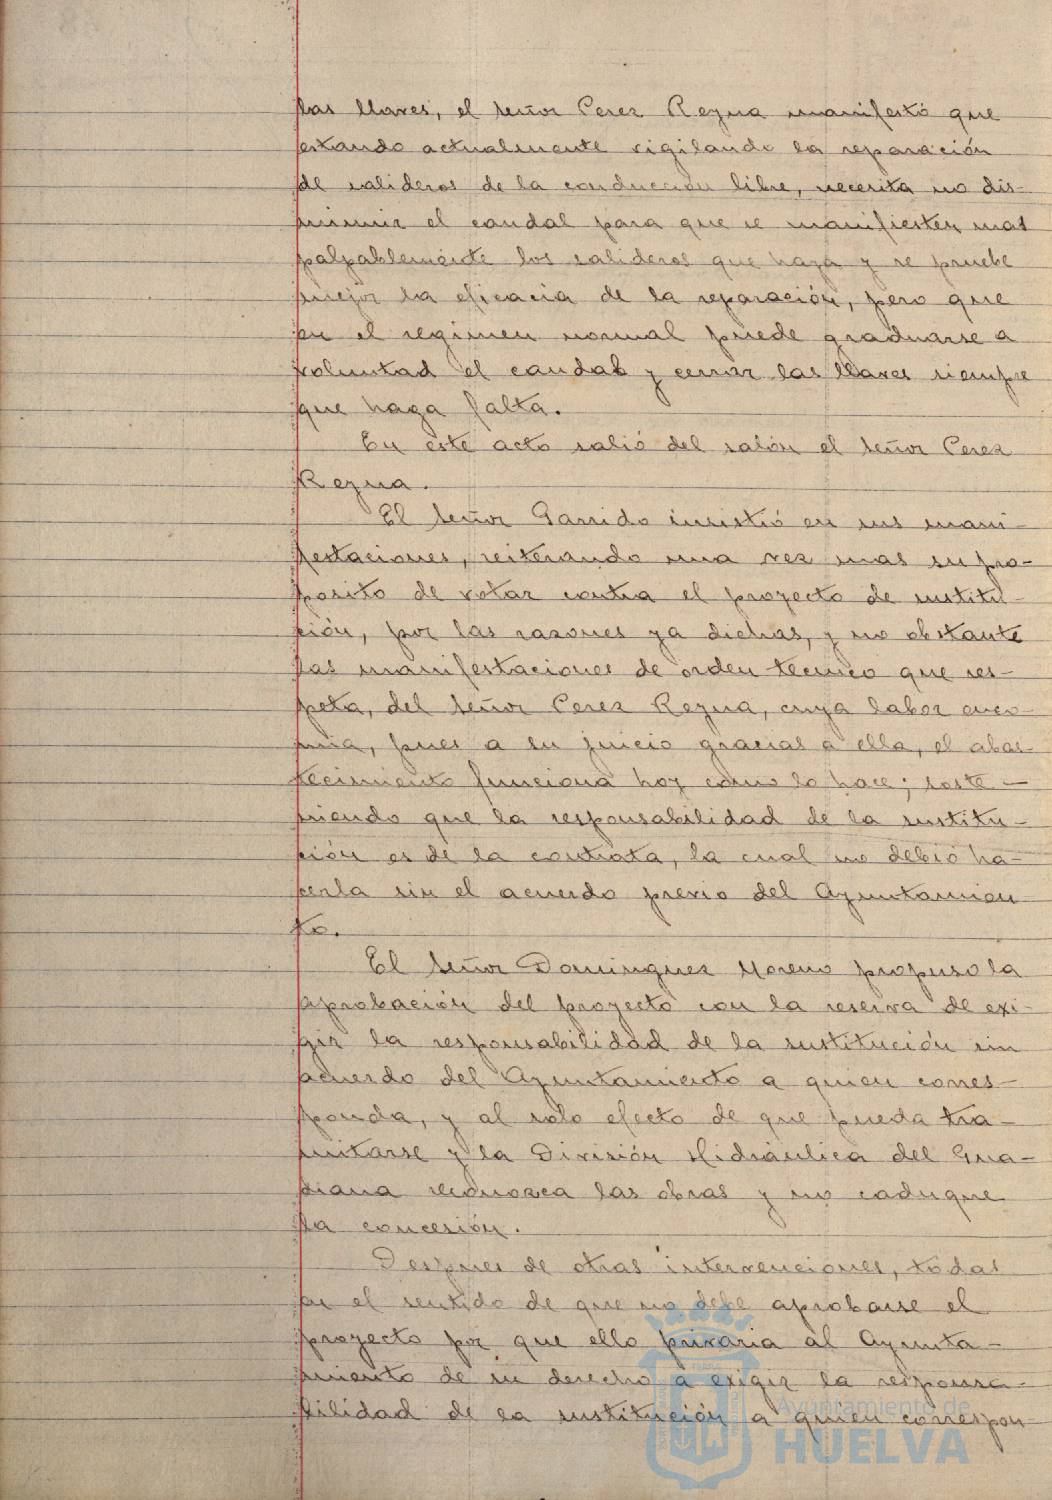 las llaves, el señor Perez Reyna manifestó que
estando actualmente vigilando la reparación
de salideros de la conducción libre, necesita no dis-
minuir el caudal para que se manifiesten mas
palpablemente los salideros que haya y se pruebe
mejor la eficacia de la reparación, pero que
en el regimen normal puede graduarse a
voluntad el caudal y cerrar las llaves siempre
que haga falta.
En este acto salió del salón el señor Perez
Reyna.
El señor Garrido insistió en sus mani-
festaciones, reiterando una vez mas su pro-
posito de votar contra el proyecto de sustitu-
ción, por las razones ya dichas, y no obstante
las manifestaciones de orden tecnico que res-
peta, del señor Perez Reyna, cuya labor enco-
mia, pues a su juicio gracias a ella, el abas-
tecimiento funciona hoy como lo hace; soste-
niendo que la responsabilidad de la sustitu-
ción es de la contrata, la cual no debió ha-
cerla sin el acuerdo previo del Ayuntamien
to.
El señor Dominguez Moreno propuso la
aprobación del proyecto con la reserva de exi-
gir la responsabilidad de la sustitución sin
acuerdo del Ayuntamiento a quien corres-
ponda, y al solo efecto de que pueda tra-
mitarse y la División Hidráulica del Gua-
diana reconozca las obras y no caduque
la concesión.
Despues de otras intervenciones, todas
en el sentido de que no debe aprobarse el
proyecto por que ello privaria al Ayunta-
miento de su derecho a exigir la responsa-
bilidad de la sustitución a quien correspon-
Ayuntamiento de
HUELVA